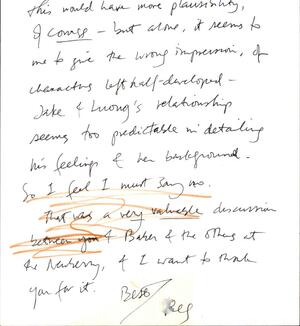 this would have more plausibility,
of course – but alone, it seems to
me to give the wrong impression, of
characters left half-developed –
Jake & Luong's relationship
seems too predictable in detailing
his feelings & her background.
So I feel I must say no.
That was a very valuable discussion
between you & Baker & the others at
the Newberry, & I want to thank
you for it.
Best
Reg